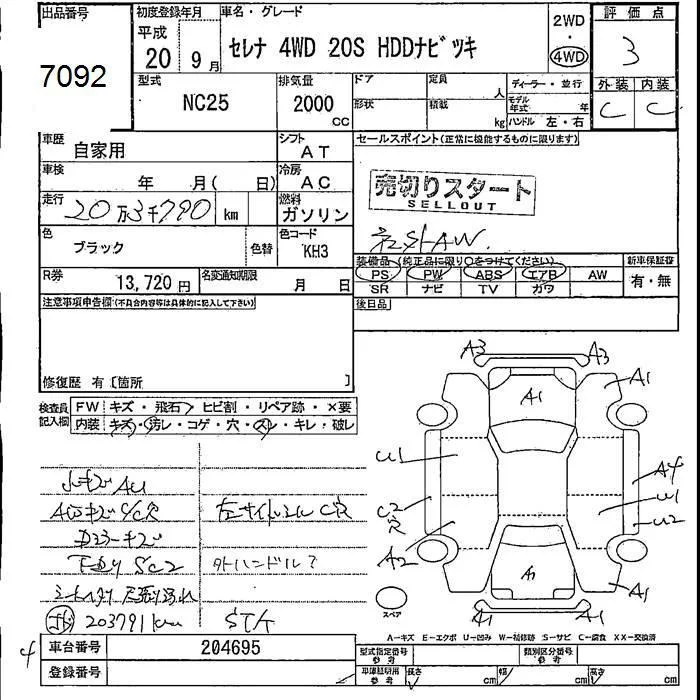 出品番号
7092
初度登録年月
平成
20 9月
車名・グレード
セレナ 4WD 20S HDDナビ゛ツキ
2WD
・
4WD
評価点
3
外装 内装
C C
型式
NC25
排気量
2000 CC
ドア
形状
定員 人
積載 kg
ディーラー・並行
モデル年式 年
ハンドル 左・右
車歴
自家用
シフト
AT
セールスポイント(正常に機能するものに限ります)
車検 年 月( 日)
冷房
AC
売切りスタート
SELLOUT
走行 20万3千790 km
燃料
ガソリン
色
ブラック
色替
色コード
KH3
社外AW
装備品(純正品に限り○をつけてください)
PS PW ABS エアB AW
SR ナビ TV カワ
新車保証書
有・無
R券 13,720円
名変通知期限 月 日
後日品
注意事項申告欄(不具合内容等は具体的に記入して下さい)
修復歴 有[箇所 ]
検査員記入欄
FW キズ・飛石・ヒビ割・リペア跡・×要
内装 キズ・汚レ・コゲ・穴・スレ・キレ・破レ
小キズ AU
AWキズ
左サイドシル C穴
外ハンドル?
203791km
STA
A3 A3
A1 A1
U1 A4
C2 U1
穴 U2
A2
A1
A1 A1
スペア
A-キズ E-エクボ U-凹み W-補修跡 S-サビ C-腐食 XX-交換済
4
車台番号 204695
登録番号
型式指定番号 参考
類別区分番号 参考
車庫証明用 参考
長さ cm 幅 cm 高さ cm